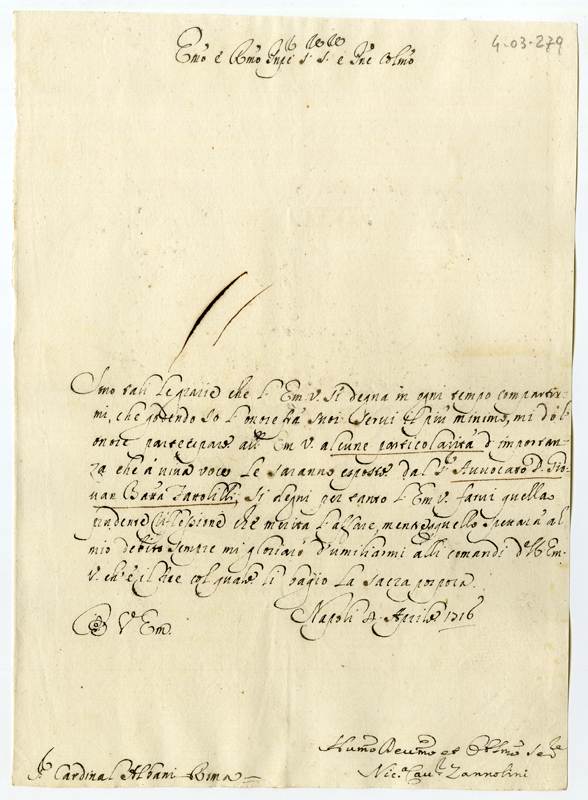 4-03-279
Emo e Rmo Snre e Pne Colmo
Sono tali le grazie che l'Em. V. si degna in ogni tempo comparti-
mi, che godendo io l'onore frà suoi servi il più minimo, mi dò l'
onore participare all' Em V. alcune particolarità d'importan-
za che à viva voce le saranno esposte dal Sr. Avvocato D. Gio-
van Batta Tarolilli; si degni per tanto l'Em V. farvi quella
prudente riflessione che merita l'affare, mentre quello spettarà al
mio debito sempre mi gloriarò d'umiliarmi alli comandi dell'Em.
V. ch'è il fine col quale li bagio la sacra porpora.
Di V. Em. Napoli 4 Aprile 1716
Humo Devmo et Oblmo Serre
Sr. Cardinal Albani Roma =
Nic. Cavr. Zannolini